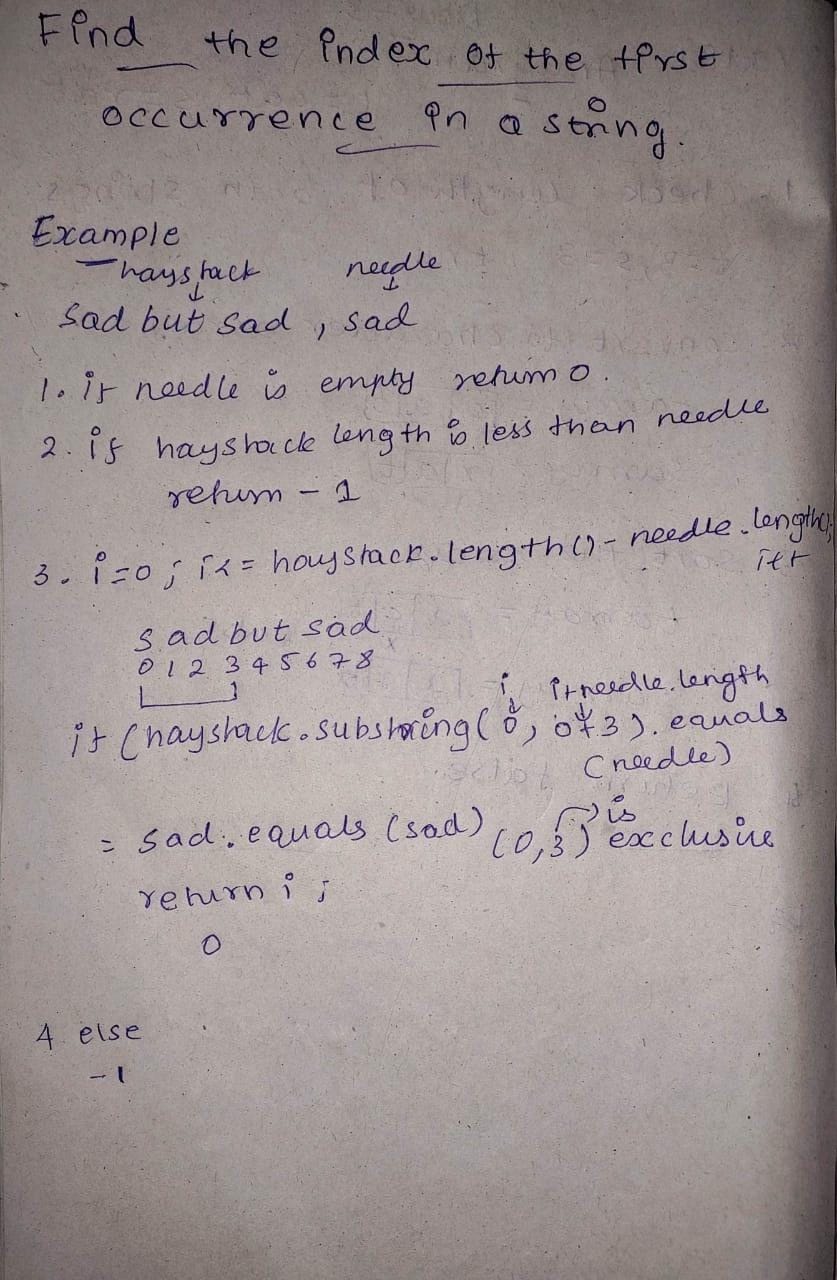 Find the index of the first
occurrence in a string.
Example
haystack needle
sad but sad , sad
1. if needle is empty return 0.
2. if haystack length is less than needle
return - 1
3. i=0 ; i<= haystack.length() - needle.length();
i++
sad but sad
0 1 2 3 4 5 6 7 8
i i+needle.length
if (haystack.substring(0, 0+3). equals
(needle)
= sad. equals (sad) (0,3) is
exclusive
return i ;
0
4 else
-1